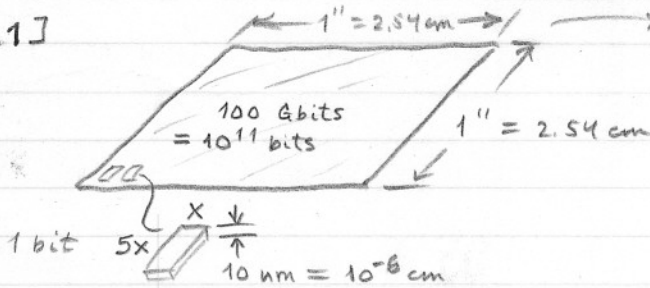 .1]
1" = 2.54 cm
100 Gbits
= 10¹¹ bits
1" = 2.54 cm
1 bit
5x
x
10 nm = 10⁻⁶ cm